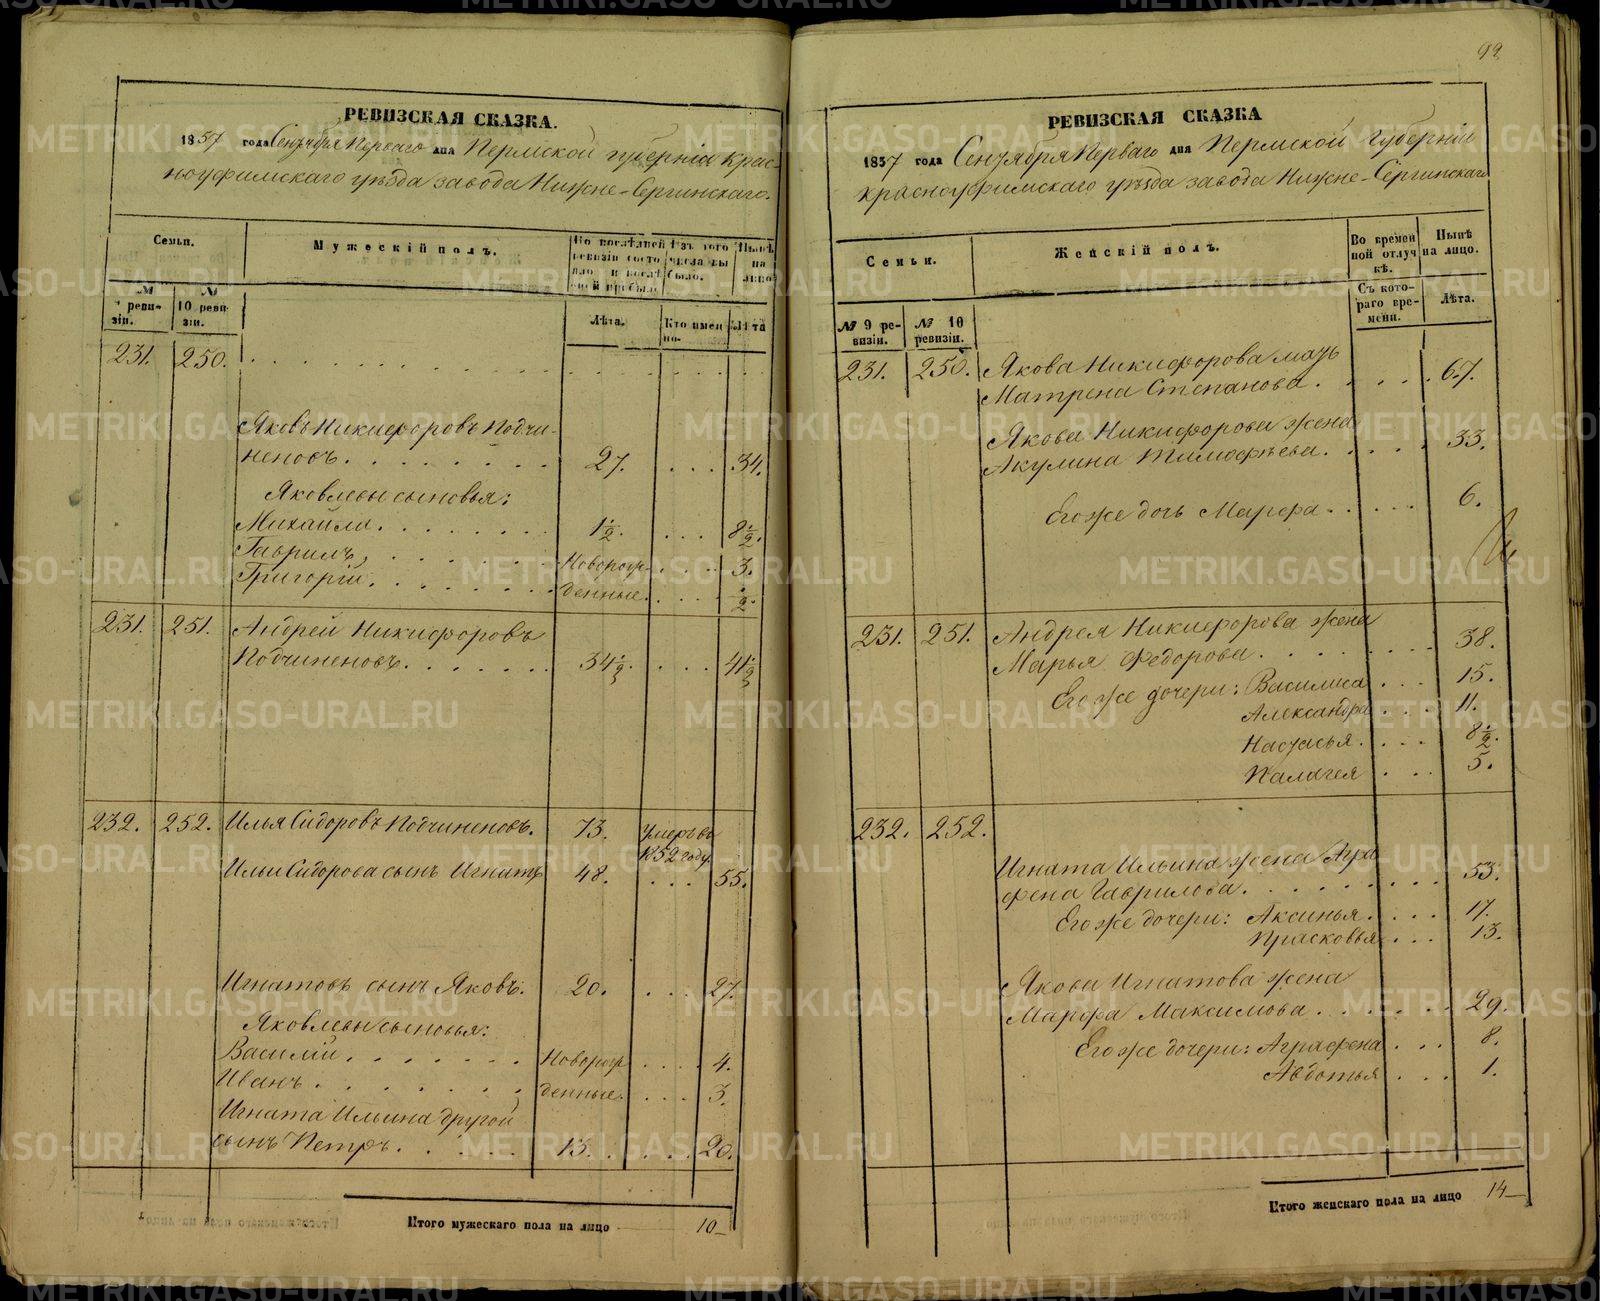 РЕВИЗСКАЯ СКАЗКА.
1857 года Сентября Перваго дня Пермской губерніи Крас-
ноуфимскаго уѣзда завода Нижне-Сергинскаго.
Семьи.
Мужескій полъ.
По послѣдней ревизіи состояло и послѣ оной прибыло
Изъ того числа выбыло.
Нынѣ на лицо
№ 9 ревизіи.
№ 10 ревизіи.
Лѣта.
Кто именно.
Лѣта
231. 250.
Яковъ Никифоровъ Подчи-
неновъ. 27. 34.
Яковлевы сыновья:
Михайло. 1 1/2. 8 1/2.
Гаврилъ, Новорож- 3.
Григорій. денные. 1/2.
231. 251. Андрей Никифоровъ
Подчиненовъ. 34 1/2. 41 1/2
232. 252. Илья Сидоровъ Подчиненовъ. 73. Умеръ въ
1852 году.
Ильи Сидорова сынъ Игнатъ 48. 55.
Игнатовъ сынъ Яковъ. 20. 27.
Яковлевы сыновья:
Василій. Новорож 4.
Иванъ. денные. 3.
Игната Ильина другой
сынъ Петръ. 13. 20.
Итого мужескаго пола на лицо 10
92
РЕВИЗСКАЯ СКАЗКА
1857 года Сентября Перваго дня Пермской Губерніи
Красноуфимскаго уѣзда завода Нижне-Сергинскаго
Семьи.
Женскій полъ.
Во временной отлучкѣ.
Нынѣ на лицо.
№ 9 ревизіи.
№ 10 ревизіи.
Съ котораго времени.
Лѣта.
231. 250. Якова Никифорова мать
Матрена Степанова. 67.
Якова Никифорова жена
Акулина Тимофѣева. 33.
Его же дочь Марфа. 6.
231. 251. Андрея Никифорова жена
Марья Федорова. 38.
Его же дочери: Василиса 15.
Александра 11.
Настасья. 8 1/2.
Палагея 5.
232. 252.
Игната Ильина жена Агра
фена Гаврилова. 53.
Его же дочери: Аксинья. 17.
Прасковья 13.
Якова Игнатова жена
Марфа Максимова. 29.
Его же дочери: Аграфена 8.
Авдотья 1.
Итого женскаго пола на лицо 14
METRIKI.GASO-URAL.RU